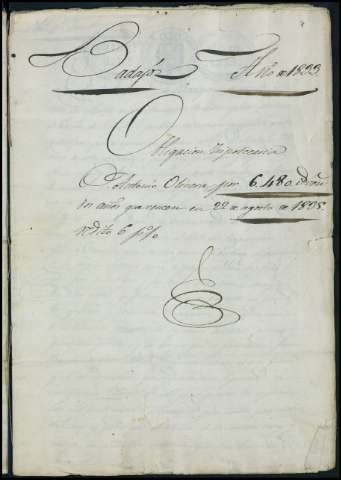 Badajoz Año de 1833.
Obligacion Hipotecaria
D. Antonio Olivera por 6.480 rs
dos años que vencen en 22 de agosto de 1835.
redito 6 p%